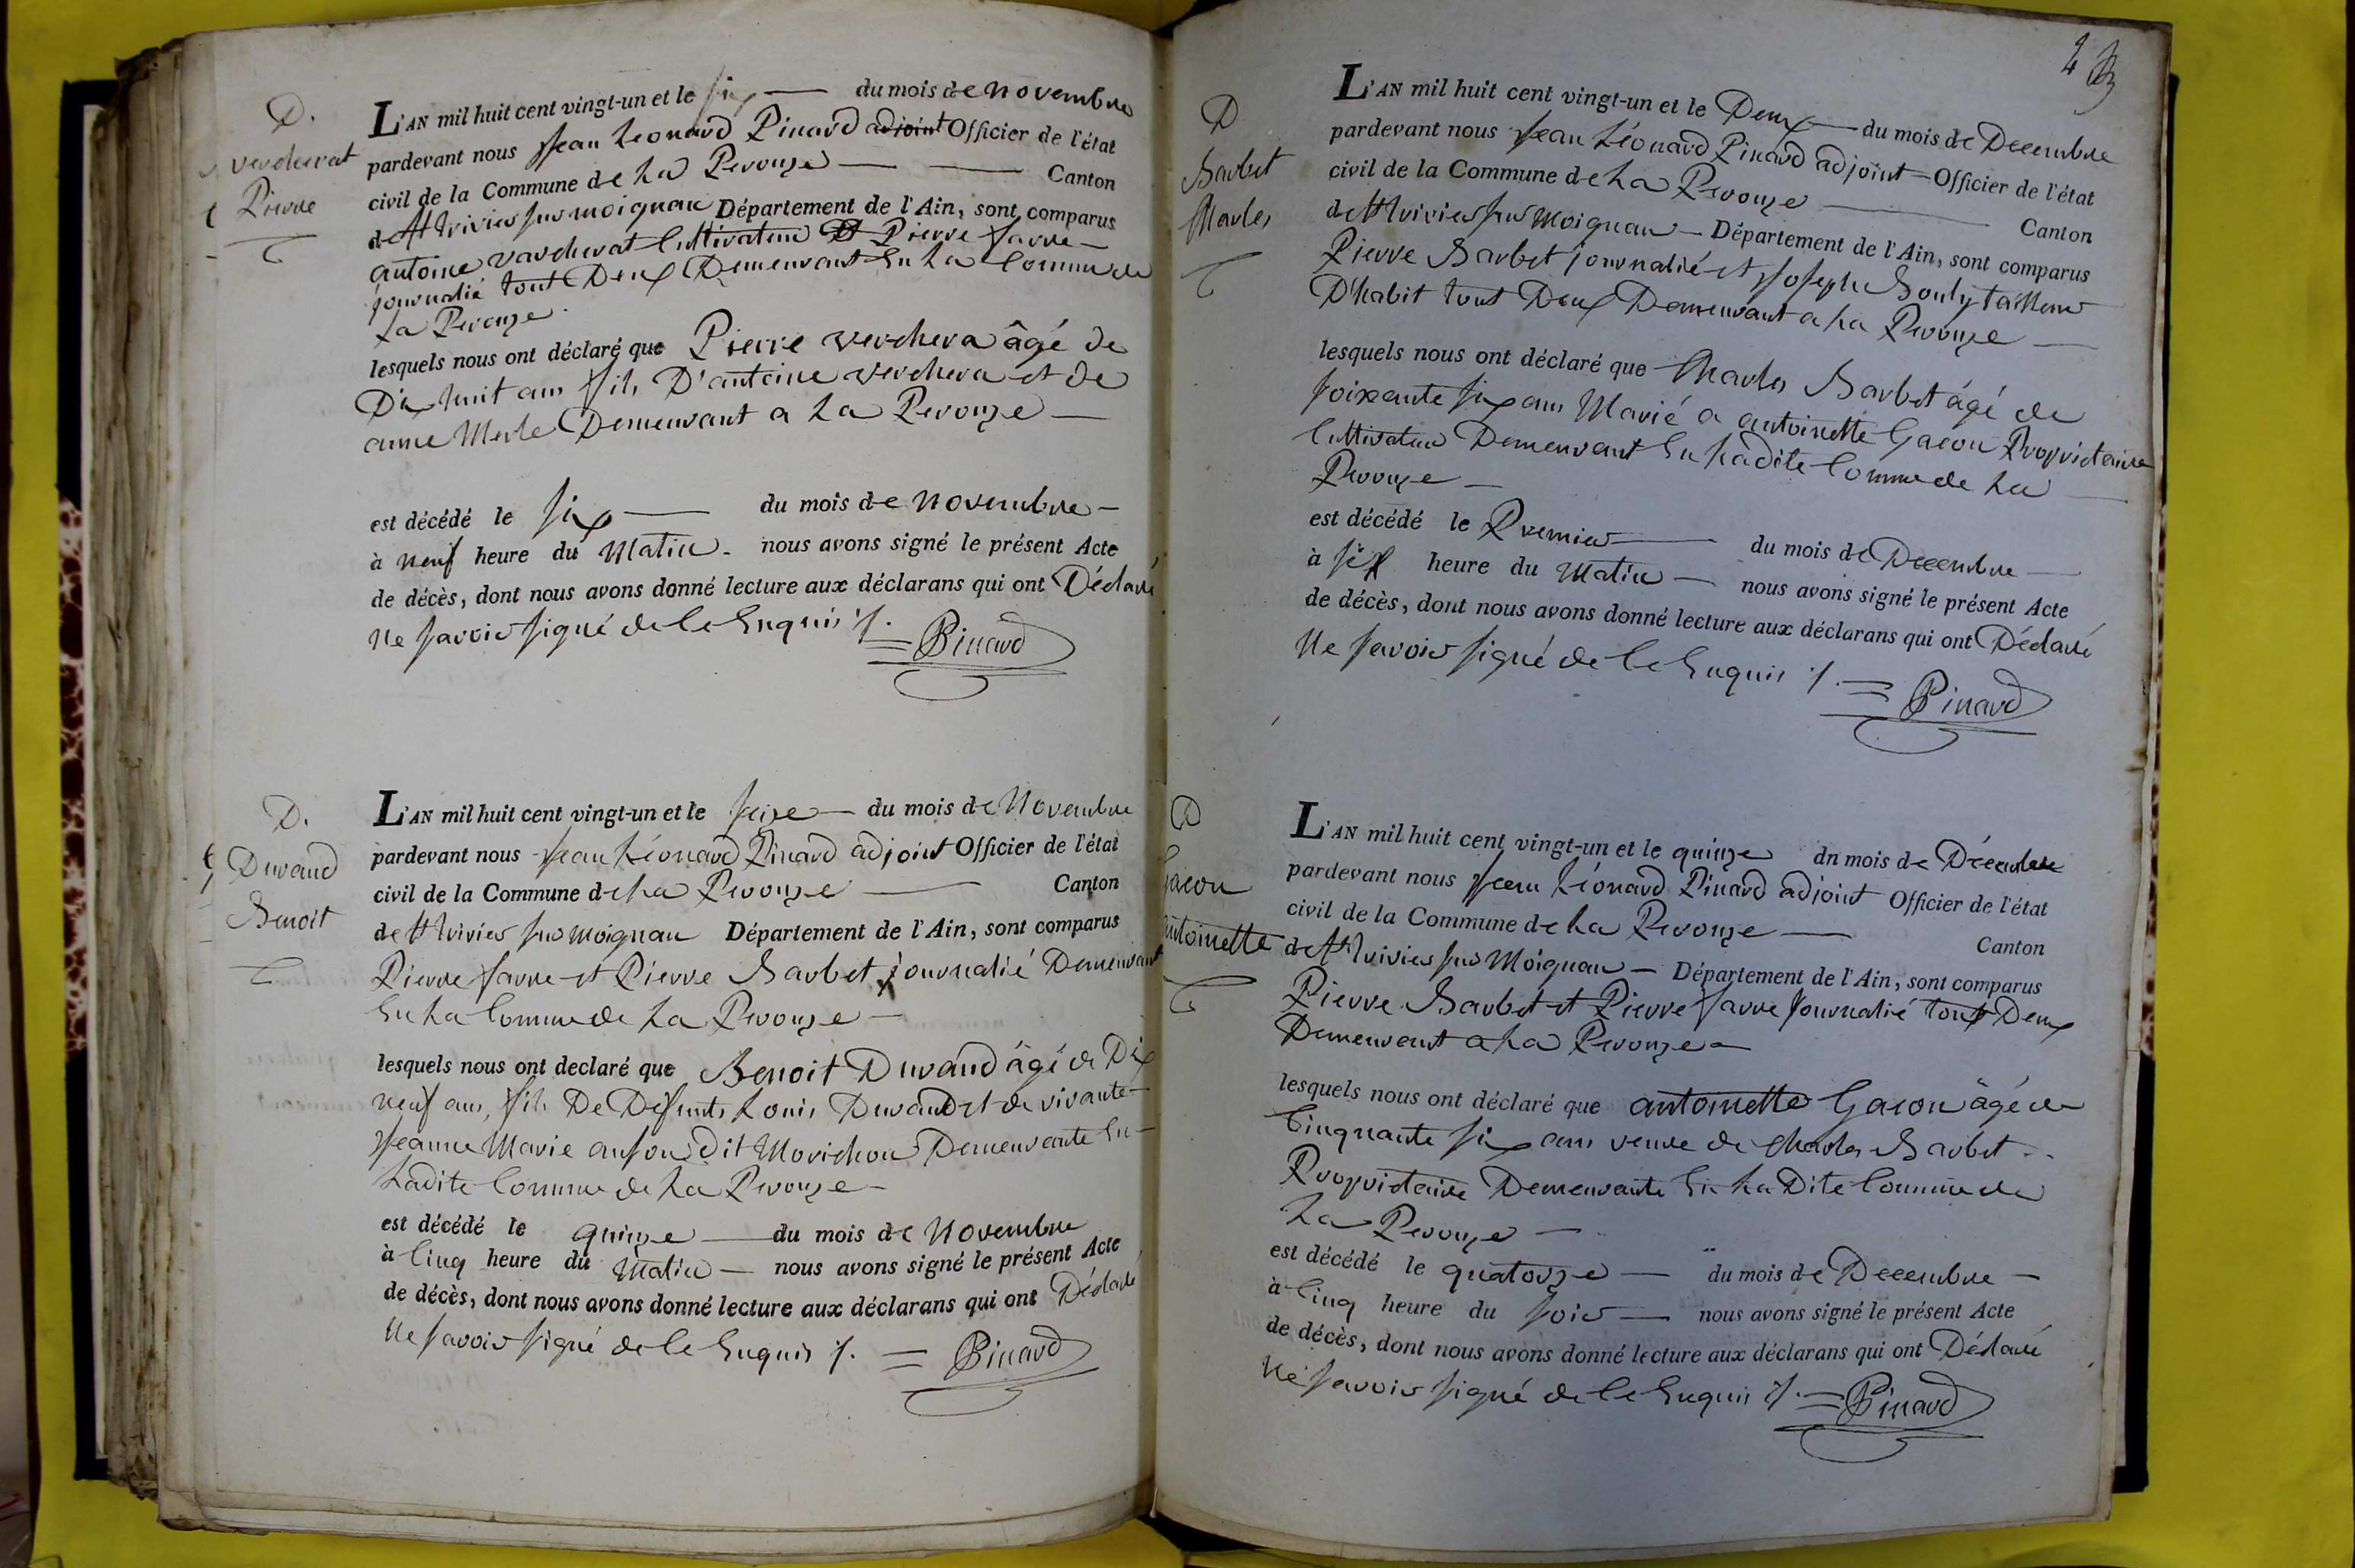 D.
vercherat
Pierre
L'AN mil huit cent vingt-un et le six du mois de novembre
pardevant nous Jean Léonard Pinard adjoint Officier de l'état
civil de la Commune de La Perouze Canton
de St trivier sur moignan Département de l'Ain, sont comparus
antoine varcherat Cultivateur Et Pierre farre
journalié tout Deux Demeurant En La Commu de
La Perouze
lesquels nous ont déclaré que Pierre verchera âgé de
Dix huit ans fils D'antoine verchera et de
anne Merle Demeurant a La Perouze
est décédé le six du mois de novembre
à neuf heure du Matin nous avons signé le présent Acte
de décès, dont nous avons donné lecture aux déclarans qui ont Déclaré
Ne savoir signé de Ce Enquis ./. Pinard
D.
Durand
Benoit
L'AN mil huit cent vingt-un et le seize du mois de Novembre
pardevant nous Jean Léonard Pinard adjoint Officier de l'état
civil de la Commune de La Perouze Canton
de St trivier sur moignan Département de l'Ain, sont comparus
Pierre farre et Pierre Barbet journalié Demeurant
En La Commu de La Perouze
lesquels nous ont declaré que Benoit Durand âgé de Dix
neuf ans, fils De Defunts Louis Durand et de vivante
Jeanne Marie dit Morichon Demeurante En
Ladite Commu de La Perouze
est décédé le quinze du mois de Novembre
à Cinq heure du Matin nous avons signé le présent Acte
de décès, dont nous avons donné lecture aux déclarans qui ont Déclaré
Ne savoir signé de Ce Enquis ./. Pinard
D
Barbet
Charles
L'AN mil huit cent vingt-un et le Deux du mois de Decembre
pardevant nous Jean Léonard Pinard adjoint Officier de l'état
civil de la Commune de La Perouze Canton
de St trivier sur Moignan Département de l'Ain, sont comparus
Pierre Barbet journalié et Joseph Bouly tailleur
D'habit tout Deux Demeurant a La Perouze
lesquels nous ont déclaré que Charles Barbet âgé de
soixante six ans Marié a antoinette Gacon Propriétaire
Cultivateur Demeurant En Ladite Commu de La
Perouze
est décédé le Premier du mois de Decembre
à six heure du Matin nous avons signé le présent Acte
de décès, dont nous avons donné lecture aux déclarans qui ont Déclaré
Ne savoir signé de Ce Enquis ./. Pinard
D
Gacon
antoinette
L'AN mil huit cent vingt-un et le quinze dn mois de Décembre
pardevant nous Jean Léonard Pinard adjoint Officier de l'état
civil de la Commune de La Perouze Canton
de St trivier sur Moignan Département de l'Ain, sont comparus
Pierre Barbet et Pierre farre journalié tout Deux
Demeurant a La Perouze
lesquels nous ont déclaré que antoinette Gacon âgé de
Cinquante six ans veuve de Charles Barbet
Propriétaire Demeurante En La Dite Commu de
La Perouze
est décédé le quatorze du mois de Decembre
à Cinq heure du soir nous avons signé le présent Acte
de décès, dont nous avons donné lecture aux déclarans qui ont Déclaré
Ne savoir signé de Ce Enquis ./. Pinard